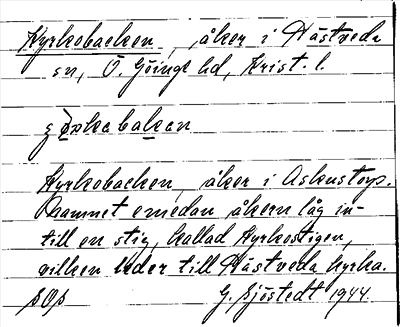 Kyrkobacken, åker i Hästveda
sn, Ö. Göinge hd, Krist. l.
Kyrkobacken, åker i Askustorp.
Namnet emedan åkern låg in-
till en stig, kallad Kyrkostigen,
vilken leder till Hästveda kyrka.
G. Sjöstedt 1944.